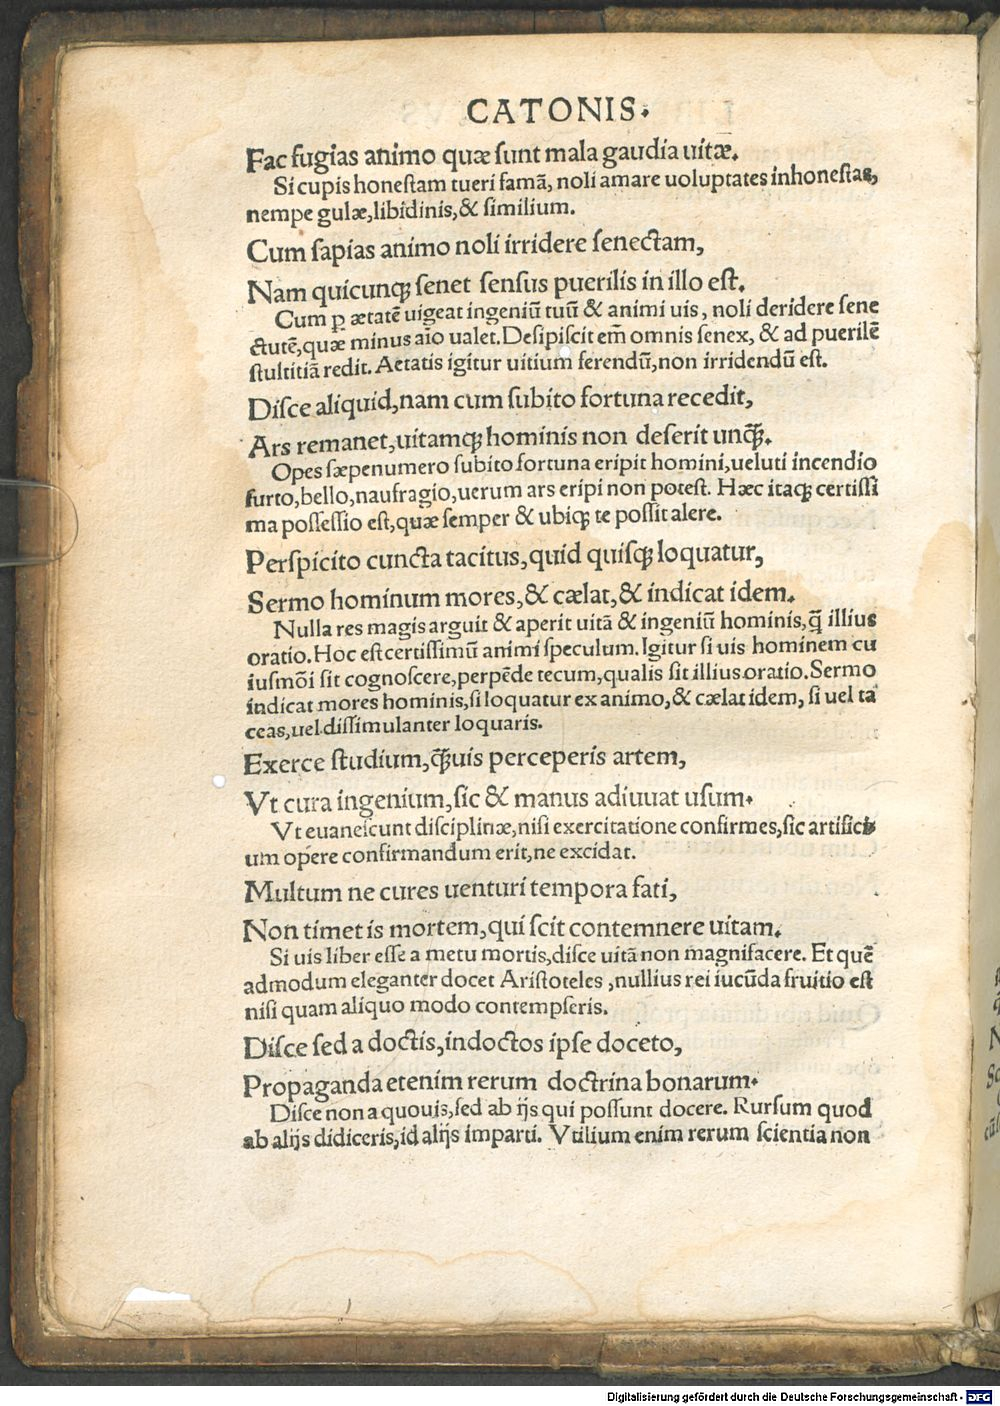 CATONIS.
Fac fugias animo quæ sunt mala gaudia uitæ.
Si cupis honestam tueri famã, noli amare uoluptates inhonestas,
nempe gulæ, libidinis, & similium.
Cum sapias animo noli irridere senectam,
Nam quicunqꝫ senet sensus puerilis in illo est.
Cum p ætatẽ uigeat ingeniũ tuũ & animi uis, noli deridere sene
ctutẽ, quæ minus aĩo ualet. Desipiscit em̃ omnis senex, & ad puerilẽ
stultitiã redit. Aetatis igitur uitium ferendũ, non irridendũ est.
Disce aliquid, nam cum subito fortuna recedit,
Ars remanet, uitamqꝫ hominis non deserit unq̃ꝫ.
Opes sæpenumero subito fortuna eripit homini, ueluti incendio
furto, bello, naufragio, uerum ars eripi non potest. Hæc itaqꝫ certissi
ma possessio est, quæ semper & ubiqꝫ te possit alere.
Perspicito cuncta tacitus, quid quisqꝫ loquatur,
Sermo hominum mores, & cælat, & indicat idem.
Nulla res magis arguit & aperit uitã & ingeniũ hominis, q̃ illius
oratio. Hoc est certissimũ animi speculum. Igitur si uis hominem cu
iusmõi sit cognoscere, perpẽde tecum, qualis sit illius oratio. Sermo
indicat mores hominis, si loquatur ex animo, & cælat idem, si uel ta
ceas, uel dissimulanter loquaris.
Exerce studium, q̃ꝫuis perceperis artem,
Vt cura ingenium, sic & manus adiuuat usum.
Vt euanescunt disciplinæ, nisi exercitatione confirmes, sic artifici
um opere confirmandum erit, ne excidat.
Multum ne cures uenturi tempora fati,
Non timet is mortem, qui scit contemnere uitam.
Si uis liber esse a metu mortis, disce uitã non magnifacere. Et quẽ
admodum eleganter docet Aristoteles, nullius rei iucũda fruitio est
nisi quam aliquo modo contempseris.
Disce sed a doctis, indoctos ipse doceto,
Propaganda etenim rerum doctrina bonarum.
Disce non a quouis, sed ab ijs qui possunt docere. Rursum quod
ab alijs didiceris, id alijs imparti. Vtilium enim rerum scientia non
Digitalisierung gefördert durch die Deutsche Forschungsgemeinschaft - DFG